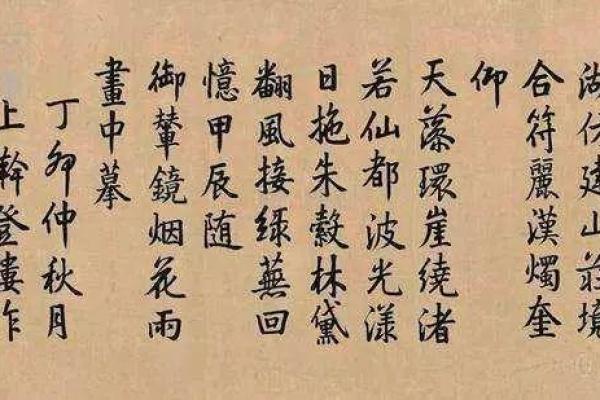 湖仿建山莊境
合符麗漢燭奎
仰
天藻環崖繞渚
若仙都波光漾
日拖朱縠林黛
翻風接綠蕪回
憶甲辰随
御輦鏡烟花雨
畫中摹
丁卯仲秋月
上澣登樓作